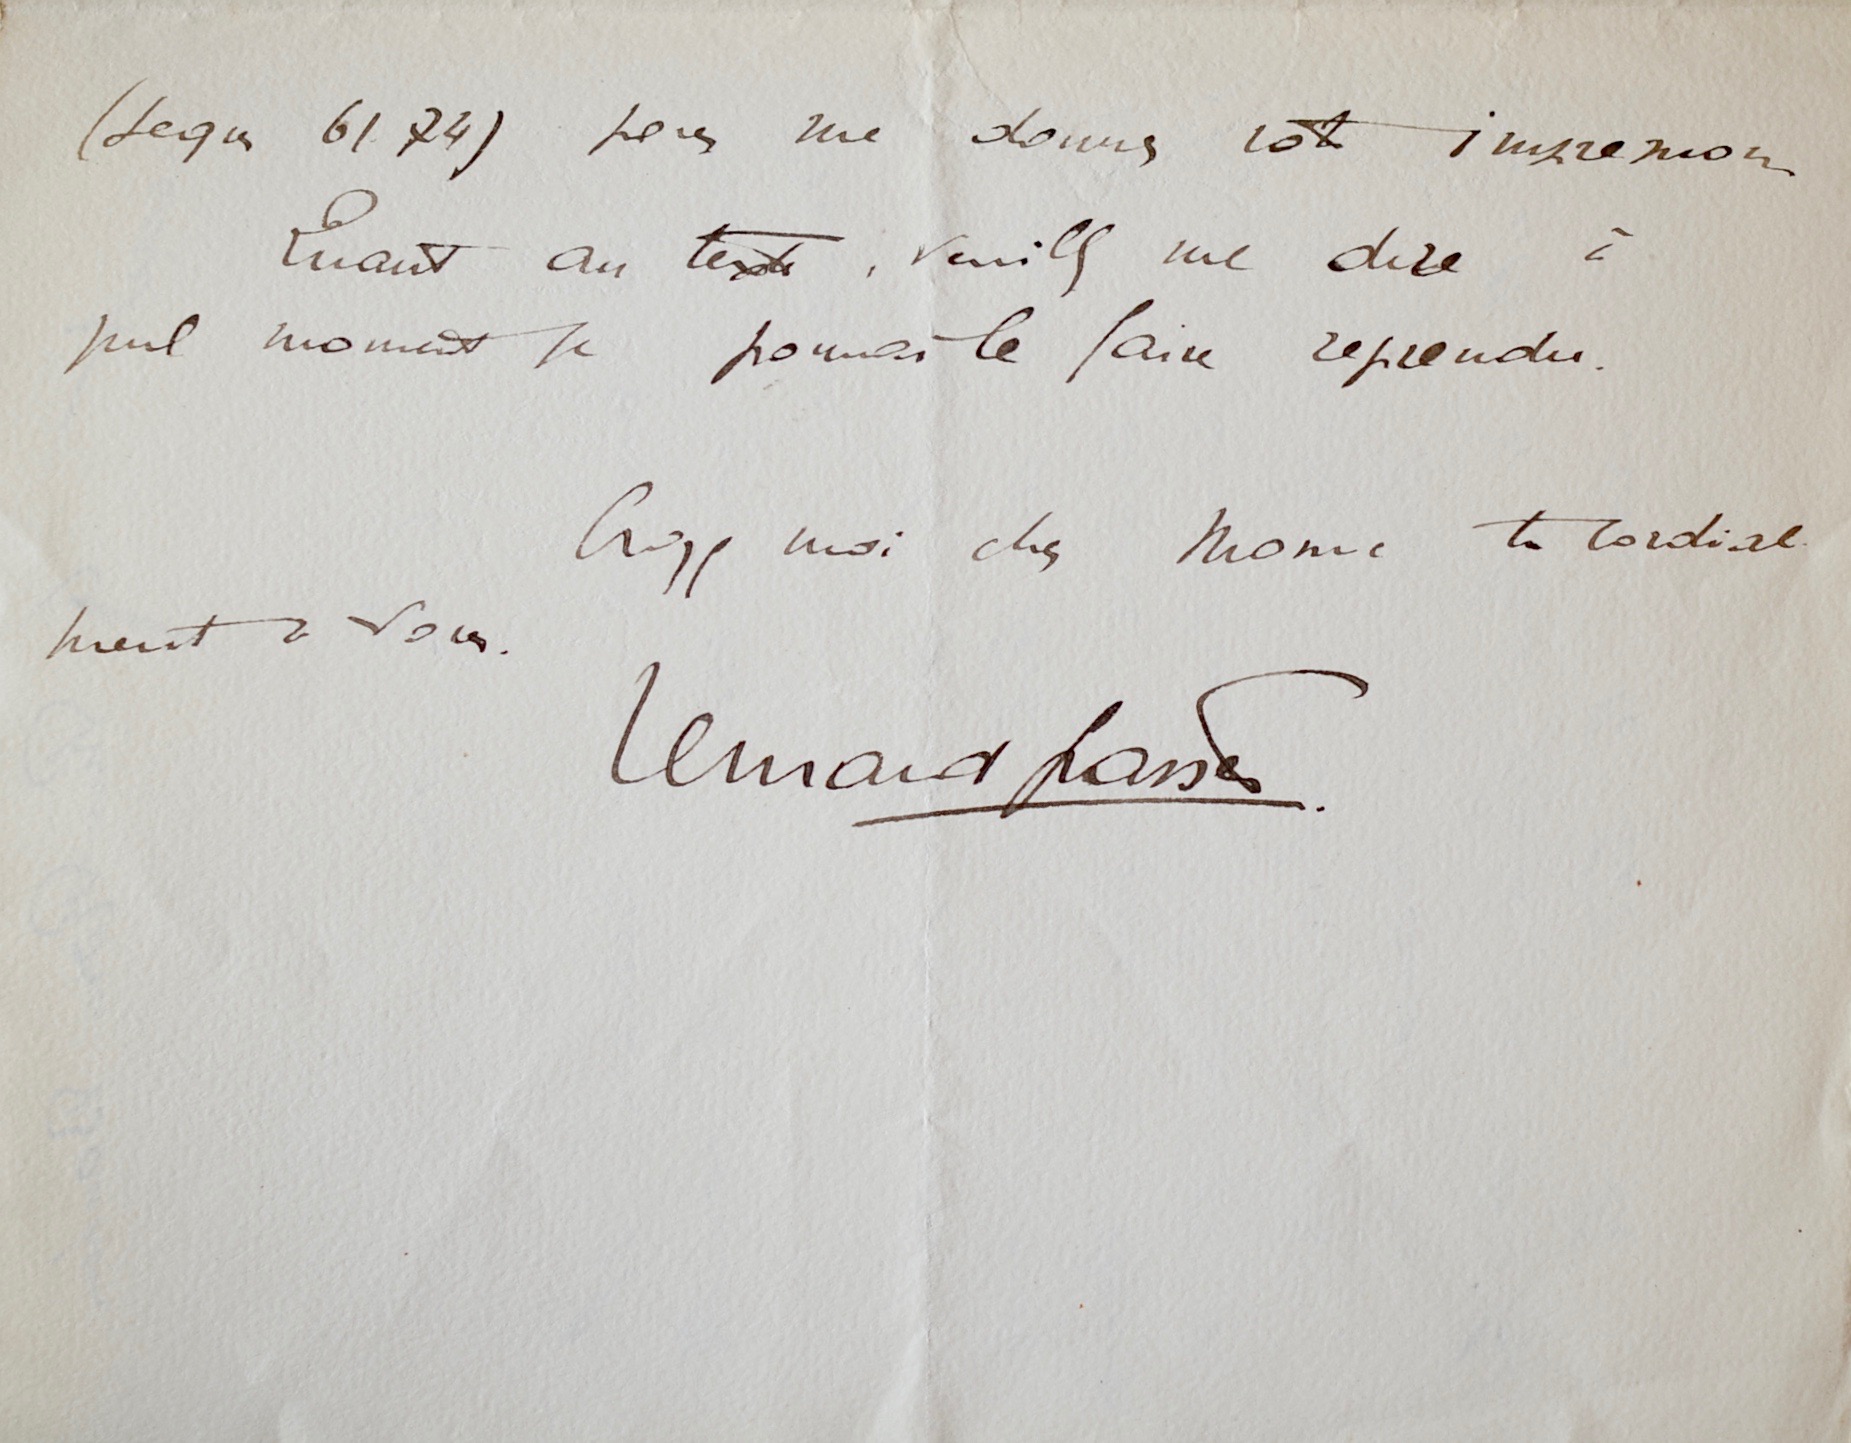 (Segur 61.74) pour me donner votre impression
Quant au texte, veuillez me dire à
quel moment je pourrai le faire reprendre.
Croyez moi cher Monsieur très cordiale
ment à vous.
Bernard Grasset.